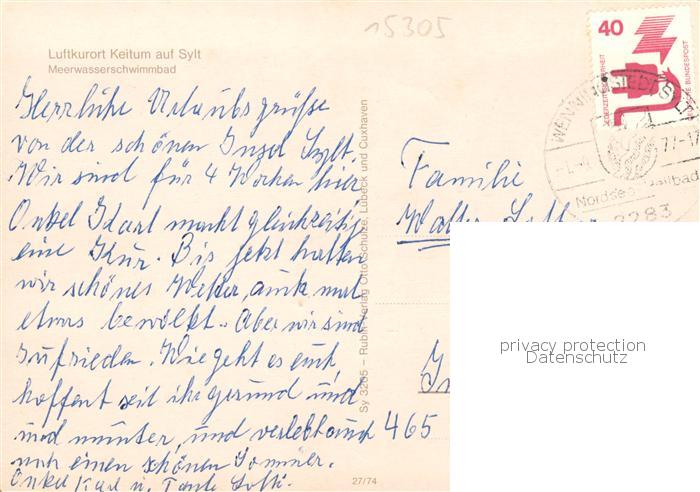 15305
Luftkurort Keitum auf Sylt
Meerwasserschwimmbad
Herrliche Urlaubsgrüße
von der schönen Insel Sylt.
Wir sind für 4 Wochen hier
Onkel Karl macht gleichzeitig
eine Kur. Bis jetzt hatten
wir schönes Wetter, auch mal
etwas bewölkt. Aber wir sind
zufrieden. Wie geht es euch,
hoffent seit ihr gesund und
und munter, und verlebt auch
noch einen schönen Sommer.
Onkel Karl u. Tante
27/74
Sy 3205 – Rubin-Verlag Otto Schulze, Lübeck und Cuxhaven
40
JEDERZEIT SICHERHEIT
DEUTSCHE BUNDESPOST
77-17
Nordseeheilbad
2283
Familie
465
privacy protection
Datenschutz